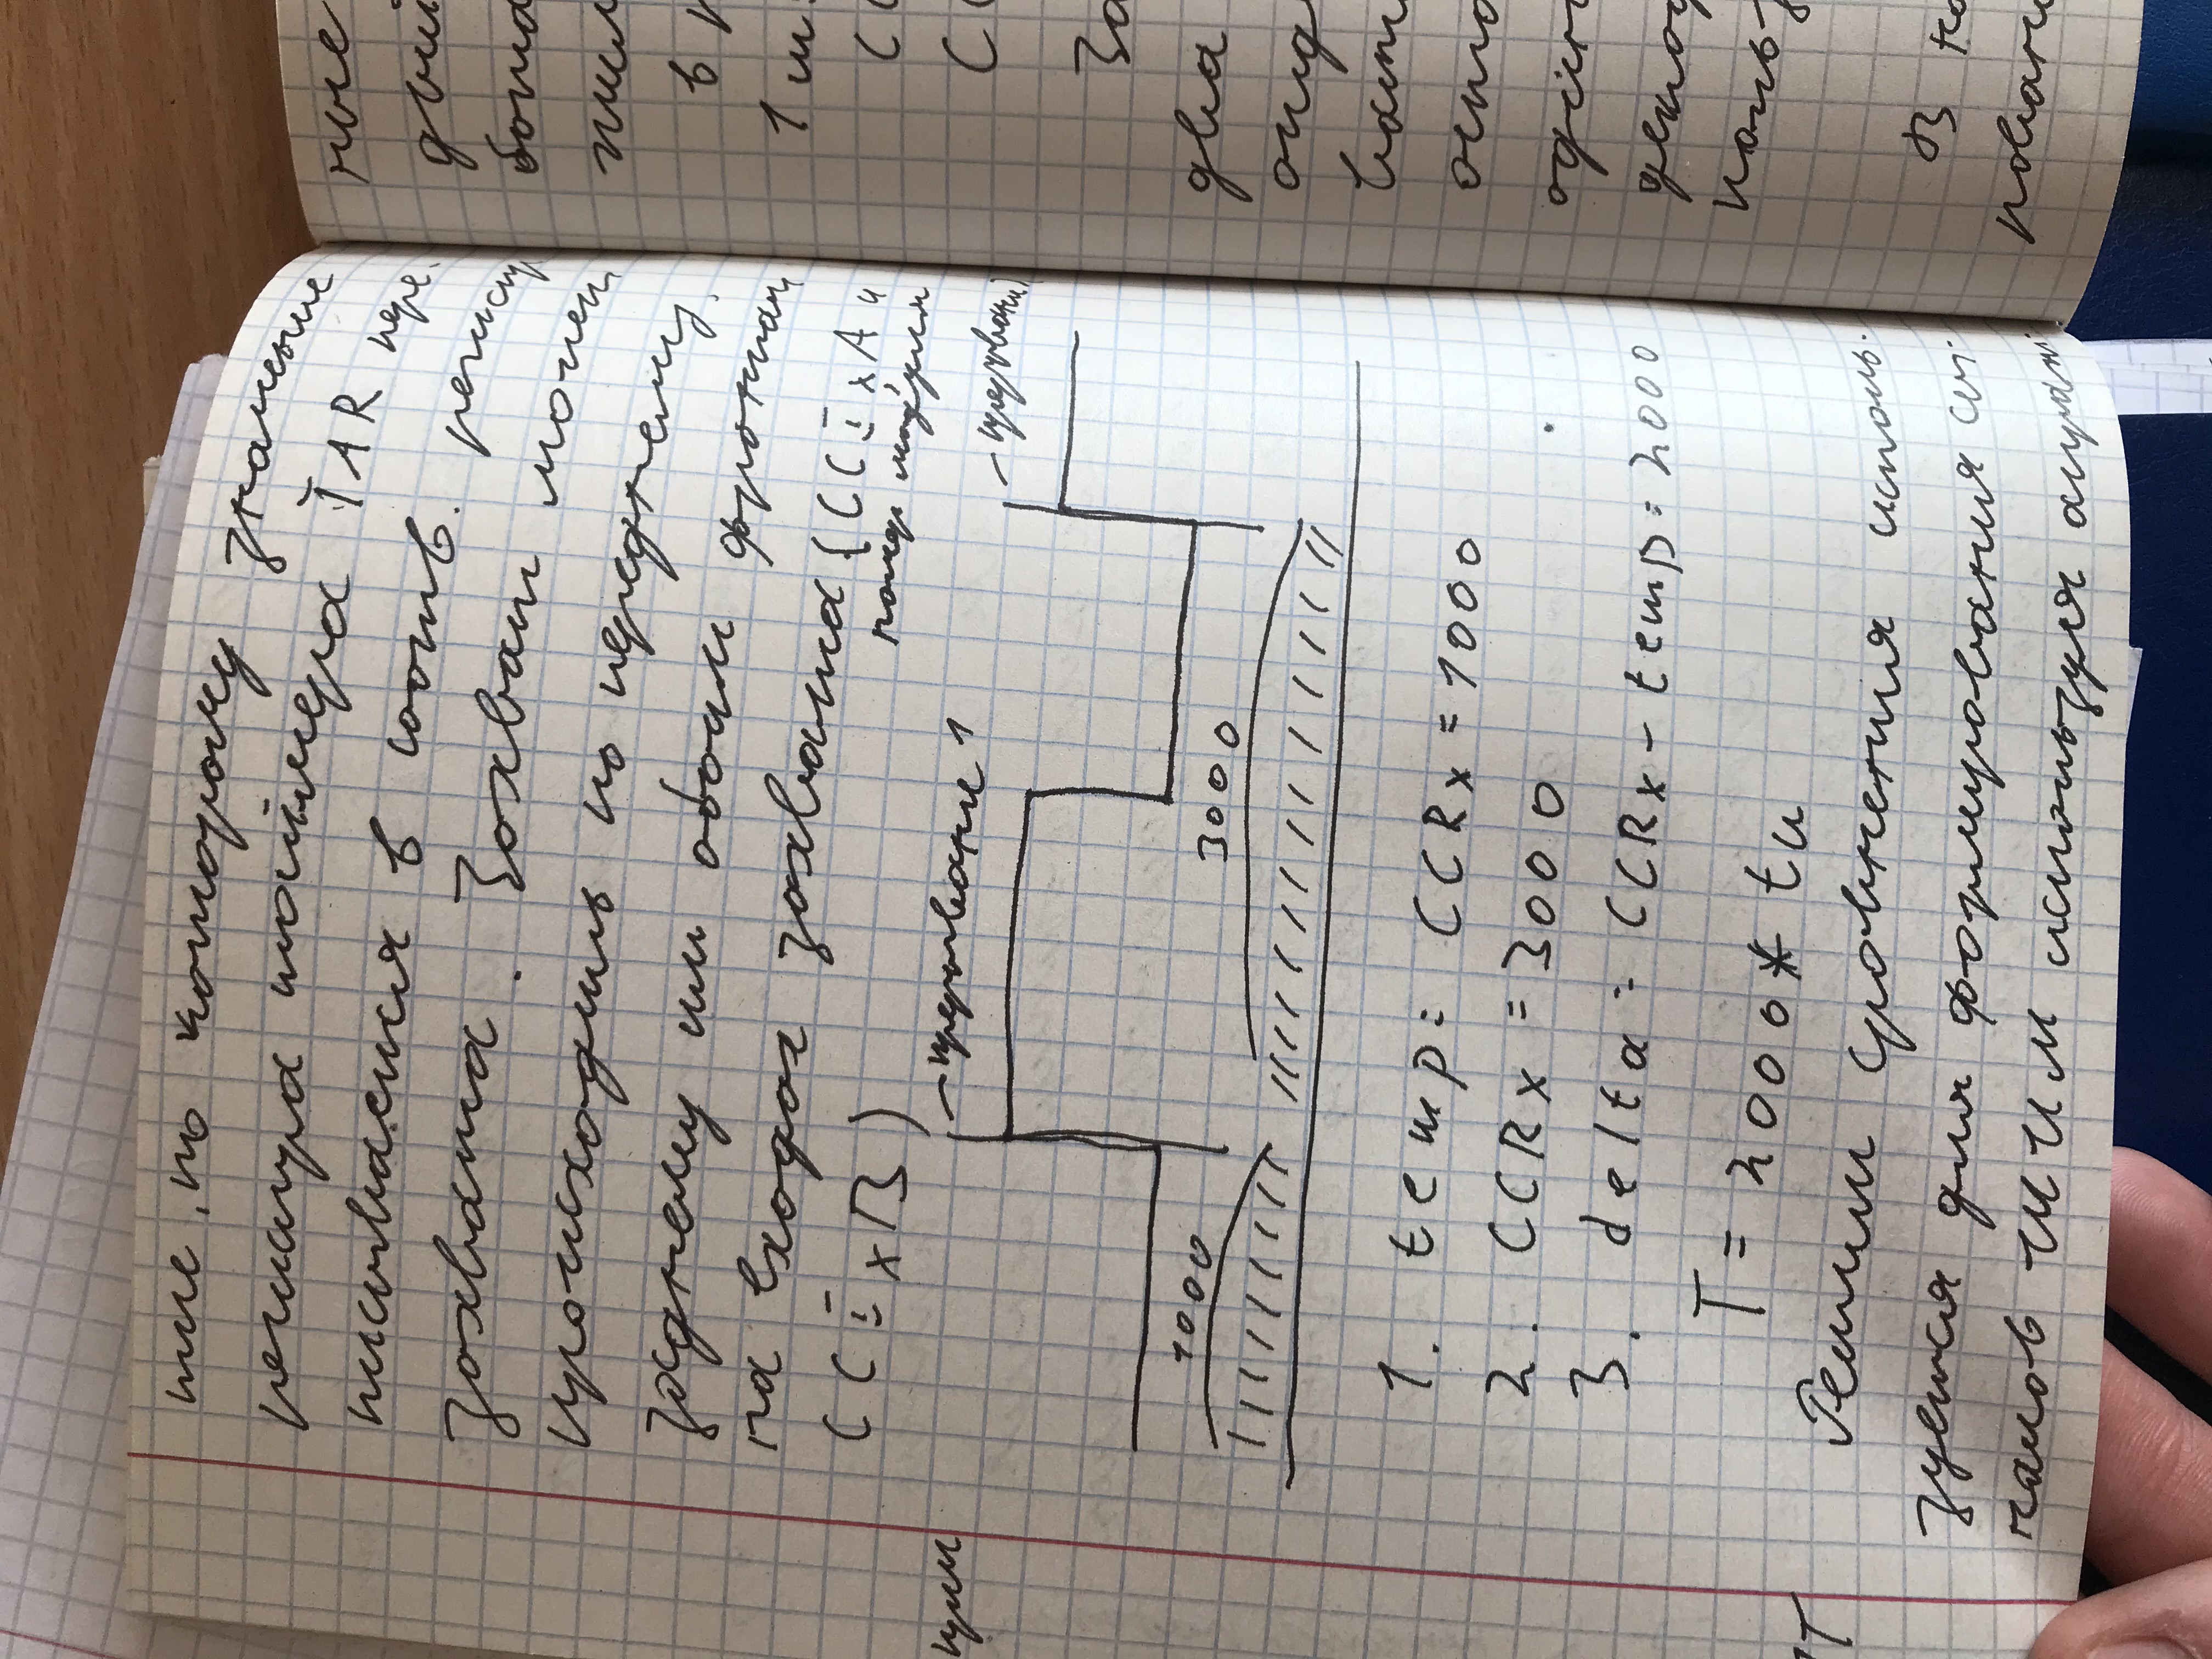 тие, по которому значение
регистра таймера TAR пере-
писывается в соотв. регистр
захвата. Захват может
происходить по переднему,
заднему или обоим фронтам
на входах захвата (CCIxA и
CCIxB)
номер модуля
ции
прерывание 1
прерывание
1000
3000
1. temp = CCRx = 1000
2. CCRx = 3000
3. delta = CCRx - temp = 2000
T = 2000 * tu
Режим сравнения исполь-
зуется для формирования сиг-
налов ШИМ используя аппарат
ные
в
1
CC
CC
За
два
В